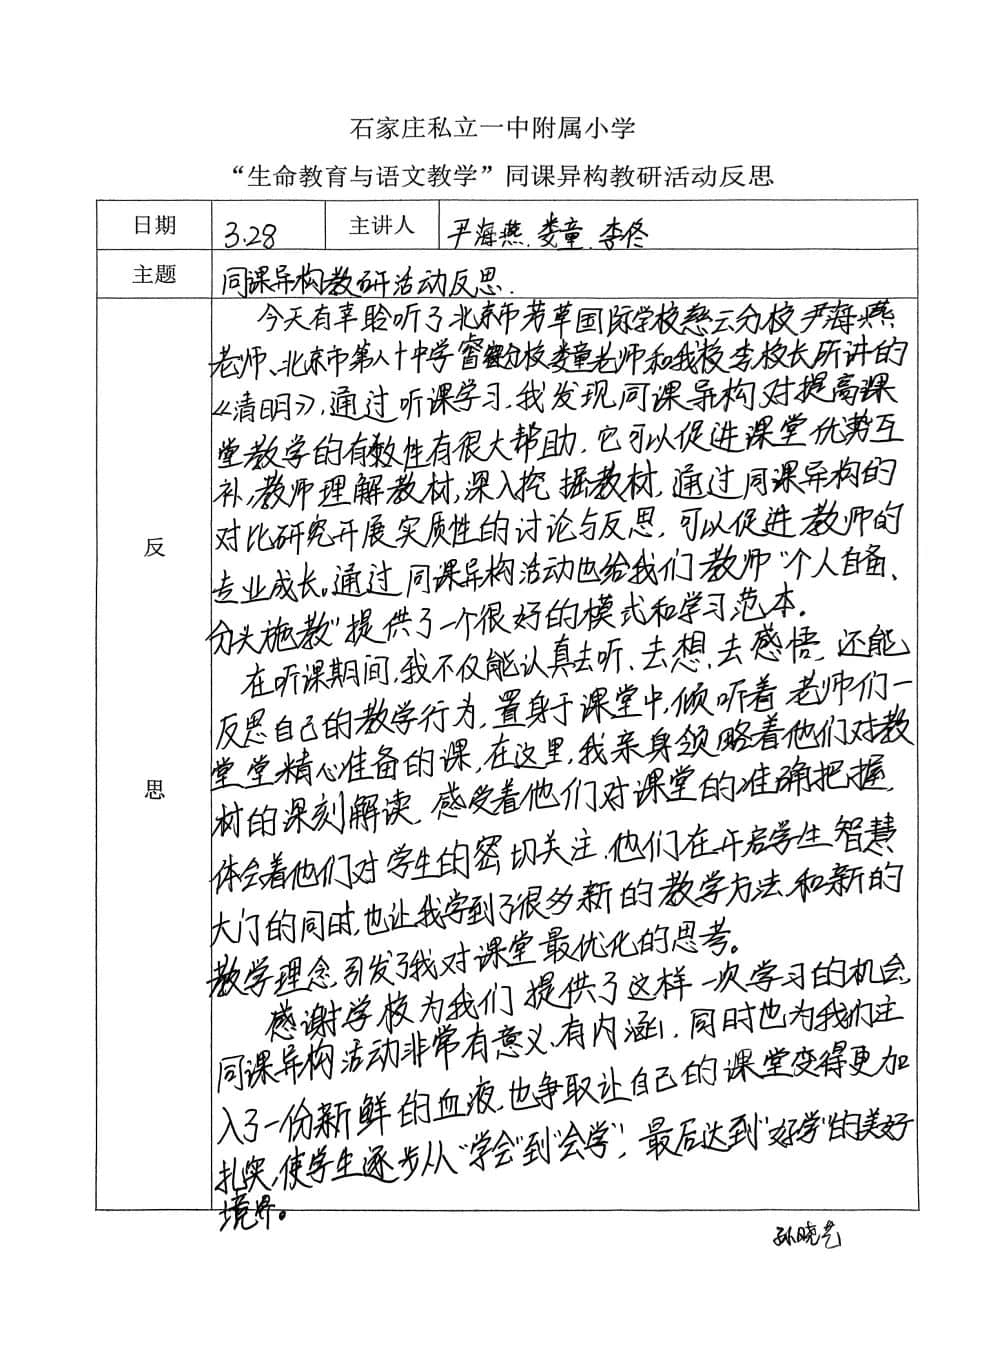 石家庄私立一中附属小学
“生命教育与语文教学”同课异构教研活动反思
日期 3.28 主讲人 尹海燕.娄童.李佟
主题 同课异构教研活动反思.
反思
今天有幸聆听了北京市芳草国际学校慈云分校尹海燕
老师、北京市第八十中学睿德分校娄童老师和我校李校长所讲的
《清明》,通过听课学习,我发现同课异构对提高课
堂教学的有效性有很大帮助,它可以促进课堂优势互
补,教师理解教材,深入挖掘教材,通过同课异构的
对比研究开展实质性的讨论与反思,可以促进教师的
专业成长。通过同课异构活动也给我们教师“个人自备、
分头施教”提供了一个很好的模式和学习范本.
在听课期间,我不仅能认真去听、去想、去感悟,还能
反思自己的教学行为,置身于课堂中,倾听着老师们一
堂堂精心准备的课,在这里,我亲身领略着他们对教
材的深刻解读,感受着他们对课堂的准确把握,
体会着他们对学生的密切关注.他们在开启学生智慧
大门的同时,也让我学到了很多新的教学方法和新的
教学理念,引发了我对课堂最优化的思考。
感谢学校为我们提供了这样一次学习的机会,
同课异构活动非常有意义、有内涵,同时也为我们注
入了一份新鲜的血液,也争取让自己的课堂变得更加
扎实,使学生逐步从“学会”到“会学”,最后达到“好学”的美好
境界。
孙晓艺